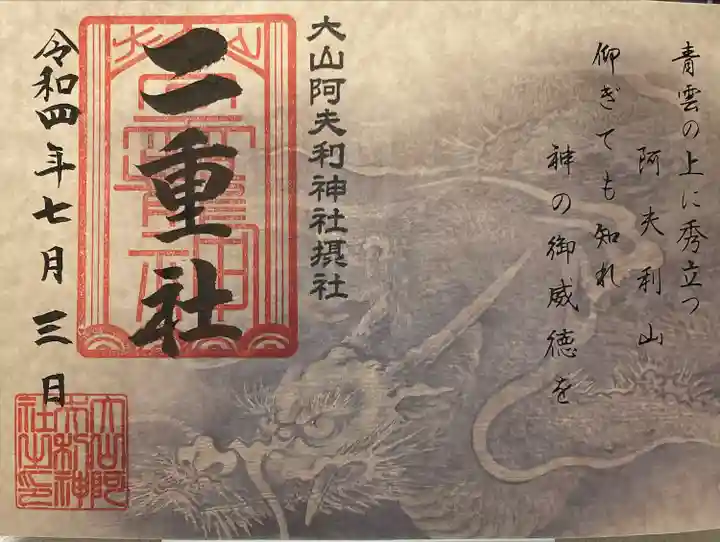 青雲の上に秀立つ
阿夫利山
仰ぎても知れ
神の御威徳を
大山阿夫利神社摂社
二重社
令和四年七月三日
大山阿
夫利神
社之印